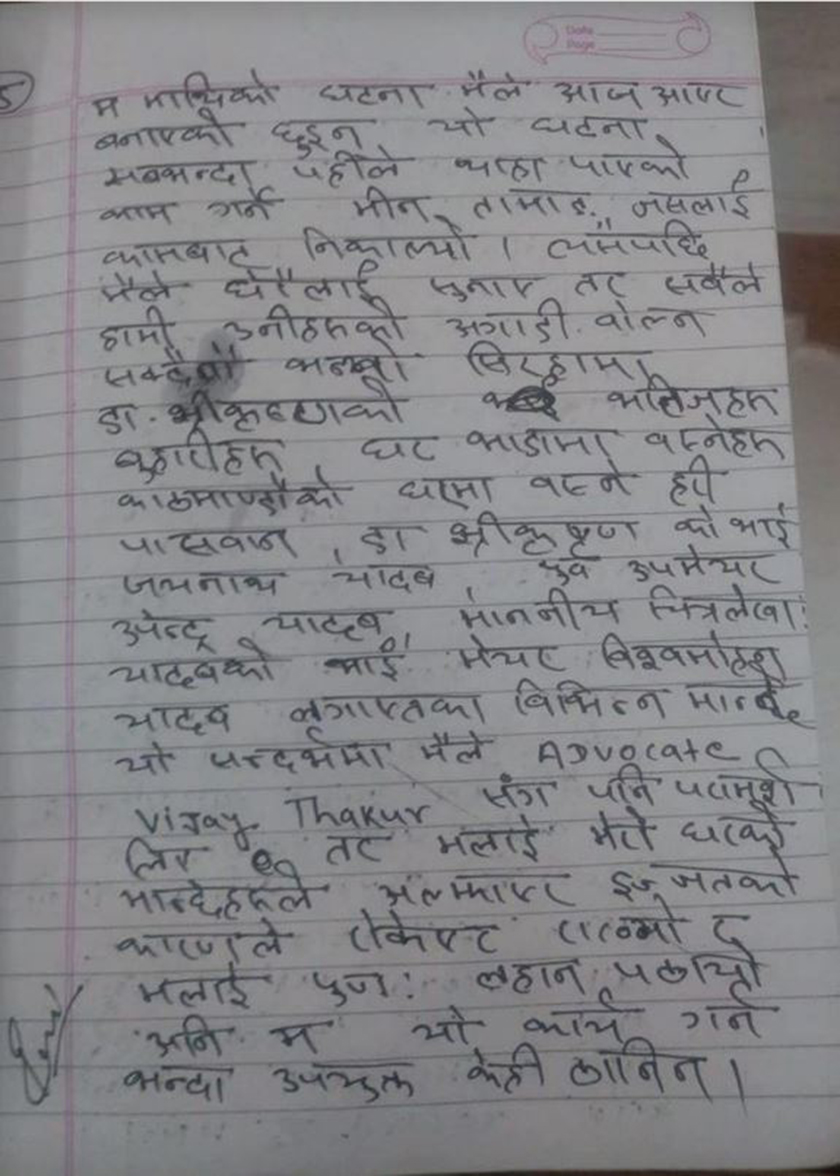 Date
Page
5
म माथिको घटना मैले आज आएर
बनाएको छुइन यो घटना
सबभन्दा पहीले थाहा पाएको
काम गर्ने मीन तामाङ जसलाई
कामबाट निकाल्यो । त्यसपछि
मैले धेरैलाई सुनाए तर सबैले
हामी उनीहरुको अगाडी बोल्न
सक्दैनौ भन्थ्यो सिरहामा
डा. श्रीकृष्णको भतिजहरु
बुहारीहरु घर भाडामा बस्नेहरु
काठमाण्डौको घरमा बस्ने हरी
पासवान, डा श्रीकृष्ण को भाई
जयनाथ यादव, पुर्व उपमेयर
उपेन्द्र यादव, माननीय चित्रलेखा
यादवको भाई मेयर विश्वमोहन
यादव लगाएतका विभिन्न मान्छे
यो सन्दर्भमा मैले Advocate
Vijay Thakur संग पनि परामर्श
लिए तर मलाई मेरो घरको
मान्छेहरुले अल्झाएर इज्जतको
कारणले रोकेएर राख्यो र
मलाई पुनः लहान पठायो
अनि म यो कार्य गर्न
भन्दा उपयुक्त केही ठानिन ।